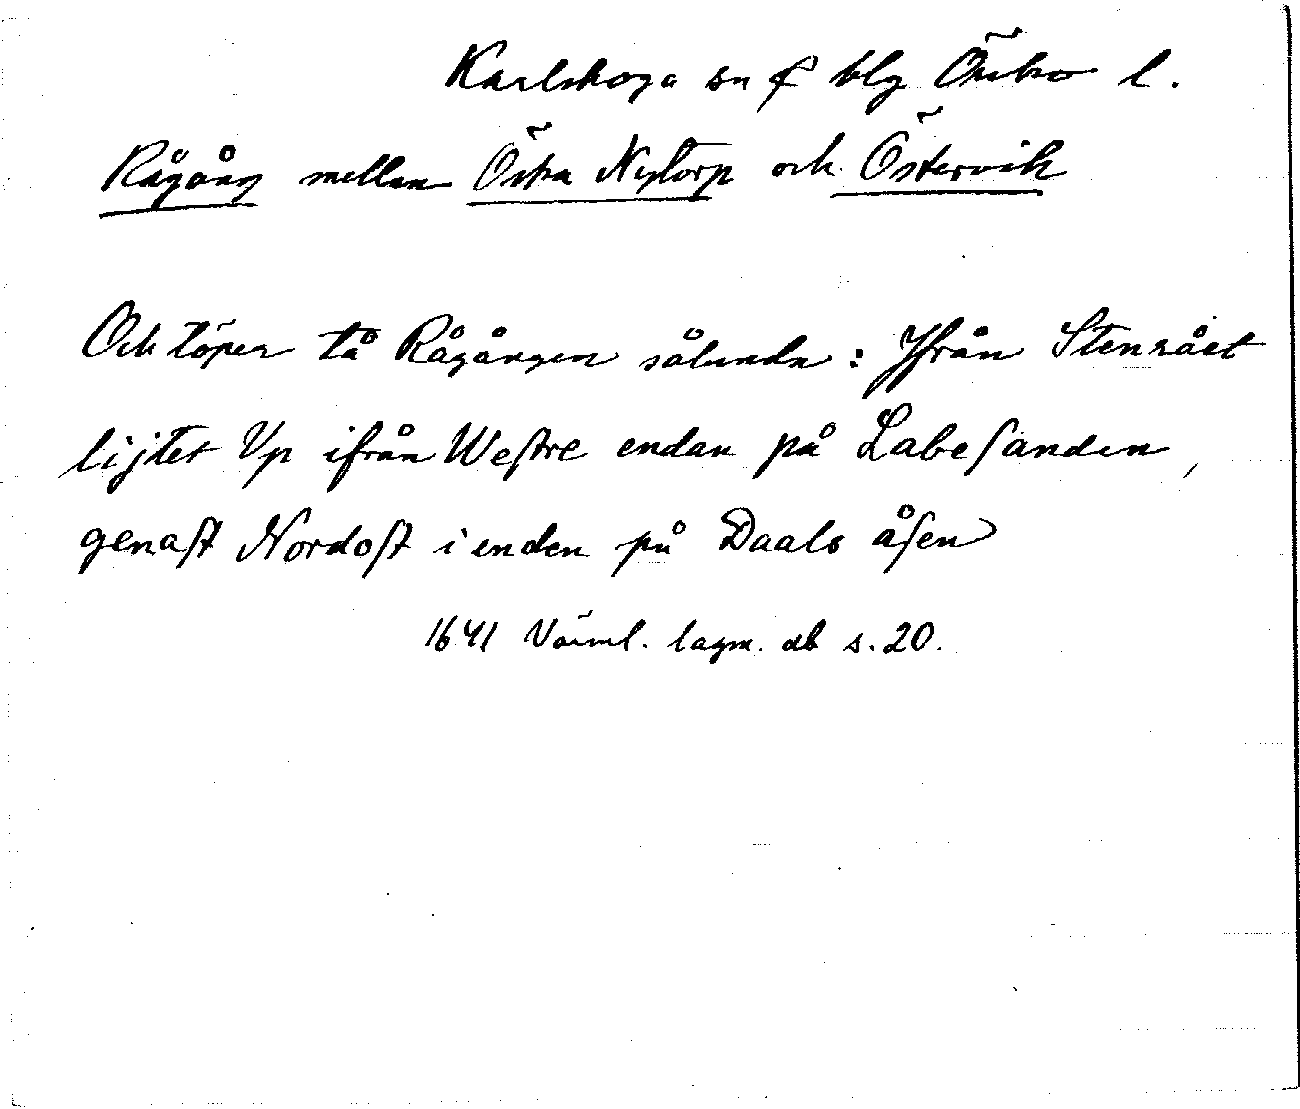 Karlskoga sn f blg Örebro l.
Rågång mellan Östra Nytorp och Östervik
Och löper tå Rågången sålunda: Ifrån Stenrået
lijtet Vp ifrån Westre endan på Labesanden,
genast Nordost i enden på Daals åsen
1641 Värml. lagm. db s. 20.